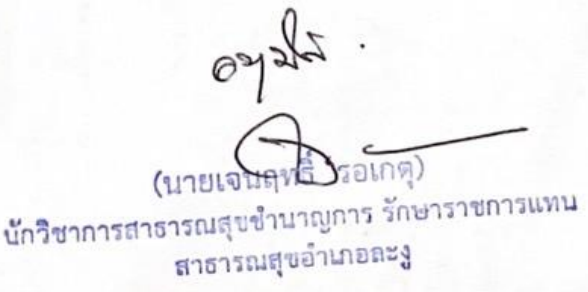 อนุมัติ
(นายเจนฤทธิ์ รอเกตุ)
นักวิชาการสาธารณสุขชำนาญการ รักษาราชการแทน
สาธารณสุขอำเภอละงู